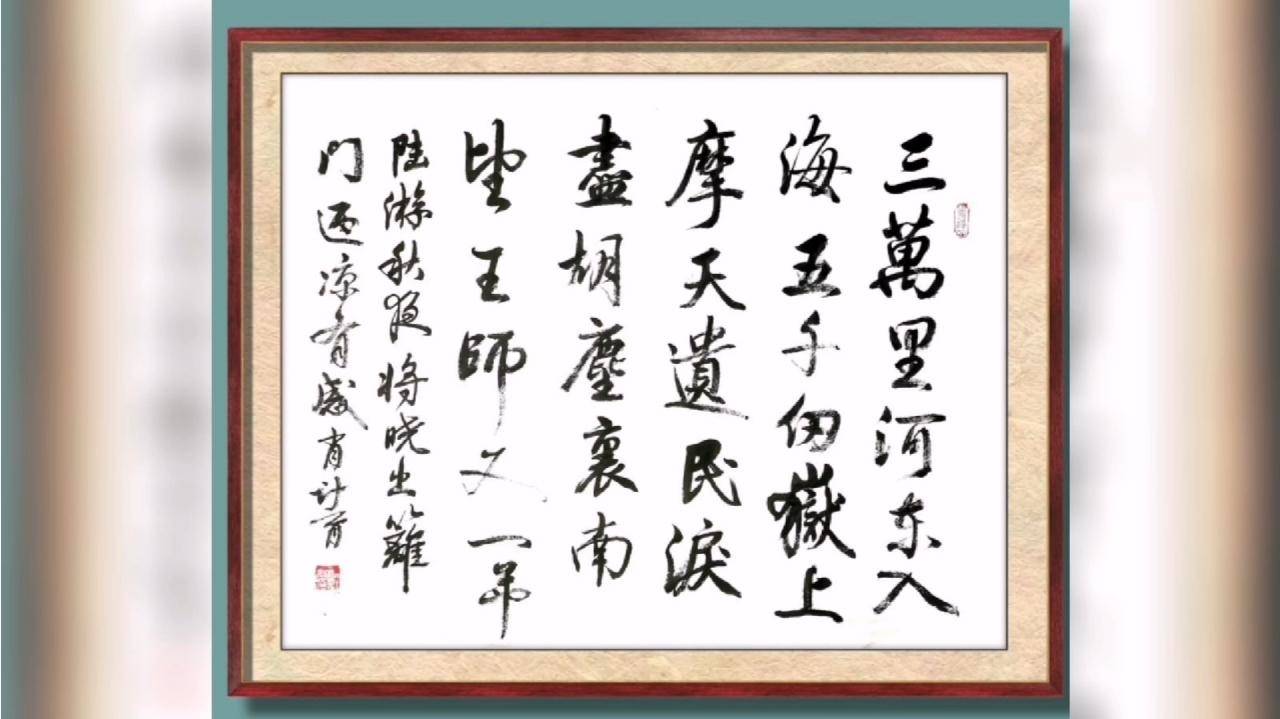 三萬里河东入
海五千仞嶽上
摩天遺民淚
盡胡塵裏南
望王師又一年
陸游秋夜将晓出籬
门迎凉有感肖计